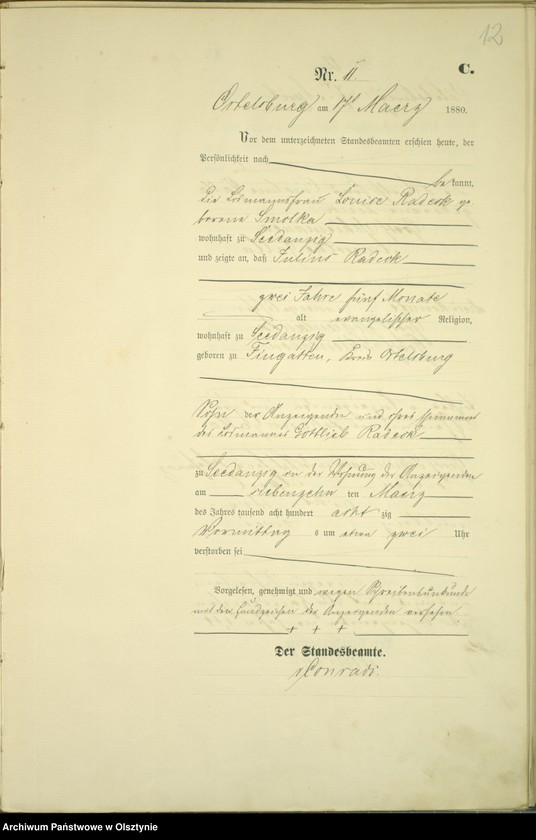 12
C.
Nr. 11.
Ortelsburg am 17t Maerz 1880.
Vor dem unterzeichneten Standesbeamten erschien heute, der
Persönlichkeit nach
be kannt,
die Losmannsfrau Louise Radeck ge
borene Smolka
wohnhaft zu Seedanzig
und zeigte an, daß Julius Radeck
zwei Jahre fünf Monate
alt evangelischer Religion,
wohnhaft zu Seedanzig
geboren zu Fingatten, Kreis Ortelsburg
Sohn der Anzeigenden und ihres Ehemannes
des Losmannes Gottlieb Radeck
zu Seedanzig in der Wohnung der Anzeigenden
am siebenzehn ten Maerz
des Jahres tausend acht hundert acht zig
Vormittag s um etwa zwei Uhr
verstorben sei
Vorgelesen, genehmigt und wegen Schreibensunkunde
mit den Handzeichen der Anzeigenden versehen.
+ + +
Der Standesbeamte.
Conrads.
Archiwum Państwowe w Olsztynie